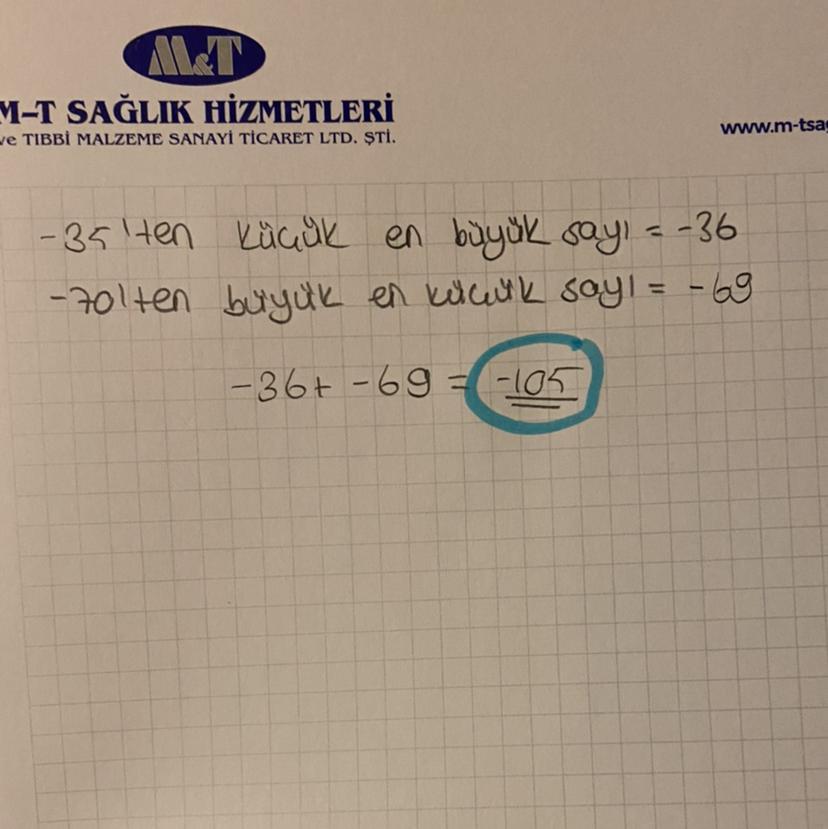 M&T
M-T SAĞLIK HİZMETLERİ
ve TIBBİ MALZEME SANAYİ TİCARET LTD. ŞTİ.
www.m-tsağ
-35'ten küçük en büyük sayı = -36
-70'ten büyük en küçük sayı = -69
-36+ -69 = -105